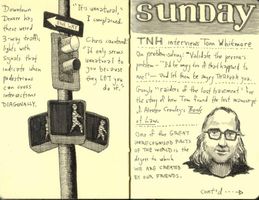 Downtown
Denver has these
weird
3-way traffic
lights with
signals that
indicate when
pedestrians
can cross
intersections
DIAGONALLY.
ONE WAY
"It's unnatural,"
I complained.
Chris countered:
"It only seems
unnatural to
you because
they LET YOU
do it."
SUNDAY
TNH interviews Tom Whitmore
On problem-solving: "Validate the person's
problem - 'I'd be angry too if that happened to
me!' - and let them be angry THROUGH you.
the story of how Tom found the lost manuscript
of Aleister Crowley's Book
of Law.
One of the GREAT
UNRECOGNIZED FACTS
OF THE WORLD IS THE
degree to which
WE ARE CREATED
BY OUR FRIENDS.
cont'd